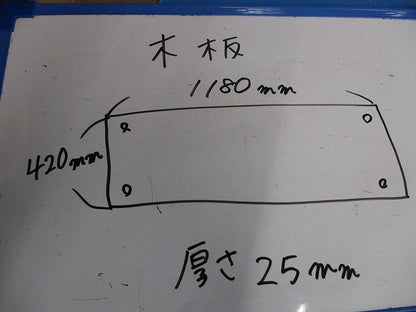 木板
1180mm
420mm
厚さ25mm